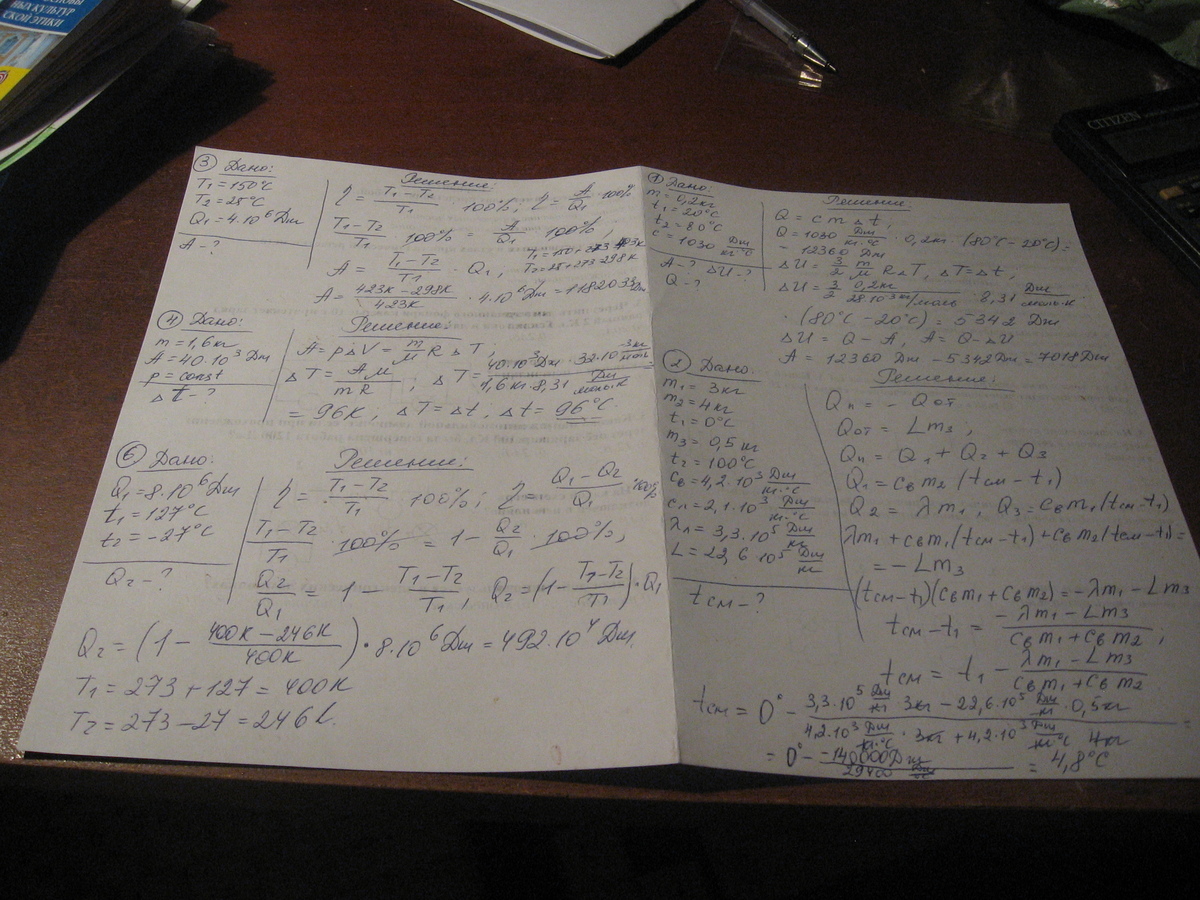 НЫХ КУЛЬТУР
СКОЙ ЭТИКИ
CITIZEN
3 Дано:
T1 = 150°C
T2 = 25°C
Q1 = 4·10^6 Дж
A - ?
Решение:
η = (T1 - T2)/T1 100%; η = A/Q1 ·100%
(T1 - T2)/T1 100% = A/Q1 100%,
A = (T1 - T2)/T1 · Q1,
T2 = 25 + 273 = 298K
A = (423K - 298K)/423K · 4·10^6 Дж = 1182033 Дж
4 Дано:
m = 1,6 кг
A = 40·10^3 Дж
p = const
Δt - ?
Решение:
A = pΔV = m/μ RΔT,
ΔT = Aμ/mR ; ΔT = (40·10^3 Дж · 32·10^-3 кг/моль)/(1,6 кг · 8,31 Дж/моль·К)
= 96K; ΔT = Δt; Δt = 96°C.
6 Дано:
Q1 = 8·10^6 Дж
t1 = 127°C
t2 = -27°C
Q2 - ?
Решение:
η = (T1 - T2)/T1 100%; η = (Q1 - Q2)/Q1 ·100%
(T1 - T2)/T1 · 100% = 1 - Q2/Q1 · 100%,
Q2/Q1 = 1 - (T1 - T2)/T1, Q2 = (1 - (T1 - T2)/T1)·Q1
Q2 = (1 - (400K - 246K)/400K) · 8·10^6 Дж = 492·10^4 Дж.
T1 = 273 + 127 = 400K
T2 = 273 - 27 = 246K.
1 Дано:
m = 0,2 кг
t1 = 20°C
t2 = 80°C
c = 1030 Дж/кг°C
A - ? ΔU - ?
Q - ?
Решение:
Q = cmΔt,
Q = 1030 Дж/кг·°C · 0,2 кг · (80°C - 20°C) =
- 12360 Дж
ΔU = 3/2 m/μ RΔT, ΔT = Δt,
ΔU = 3/2 0,2 кг/(28·10^-3 кг/моль) · 8,31 Дж/моль·К
· (80°C - 20°C) = 5342 Дж
ΔU = Q - A, A = Q - ΔU
A = 12360 Дж - 5342 Дж = 7018 Дж
2 Дано:
m1 = 3 кг
m2 = 4 кг
t1 = 0°C
m3 = 0,5 кг
t2 = 100°C
cв = 4,2·10^3 Дж/кг·°C
cл = 2,1·10^3 Дж/кг·°C
λл = 3,3·10^5 Дж/кг
L = 22,6·10^5 Дж/кг
tсм - ?
Решение:
Qп = - Qот
Qот = Lm3,
Qп = Q1 + Q2 + Q3
Q1 = cвm2(tсм - t1)
Q2 = λm1, Q3 = cвm1(tсм - t1)
λm1 + cвm1(tсм - t1) + cвm2(tсм - t1) =
= - Lm3
(tсм - t1)(cвm1 + cвm2) = -λm1 - Lm3
tсм - t1 = (-λm1 - Lm3)/(cвm1 + cвm2),
tсм = t1 - (λm1 - Lm3)/(cвm1 + cвm2)
tсм = 0° - (3,3·10^5 Дж/кг · 3кг - 22,6·10^5 Дж/кг · 0,5кг)/(4,2·10^3 Дж/кг·°C · 3кг + 4,2·10^3 Дж/кг°C 4кг) =
= 0° - (-140000Дж)/(29400 Дж/°C) = 4,8°C